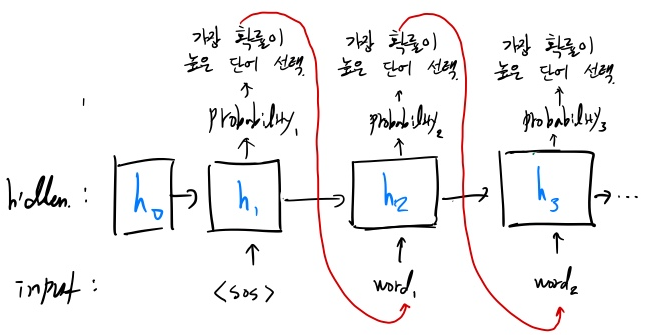 가장 확률이
높은 단어 선택
가장 확률이
높은 단어 선택
가장 확률이
높은 단어 선택
probability₁
probability₂
probability₃
hidden :
h₀
h₁
h₂
h₃
...
input :
<sos>
word₁
word₂